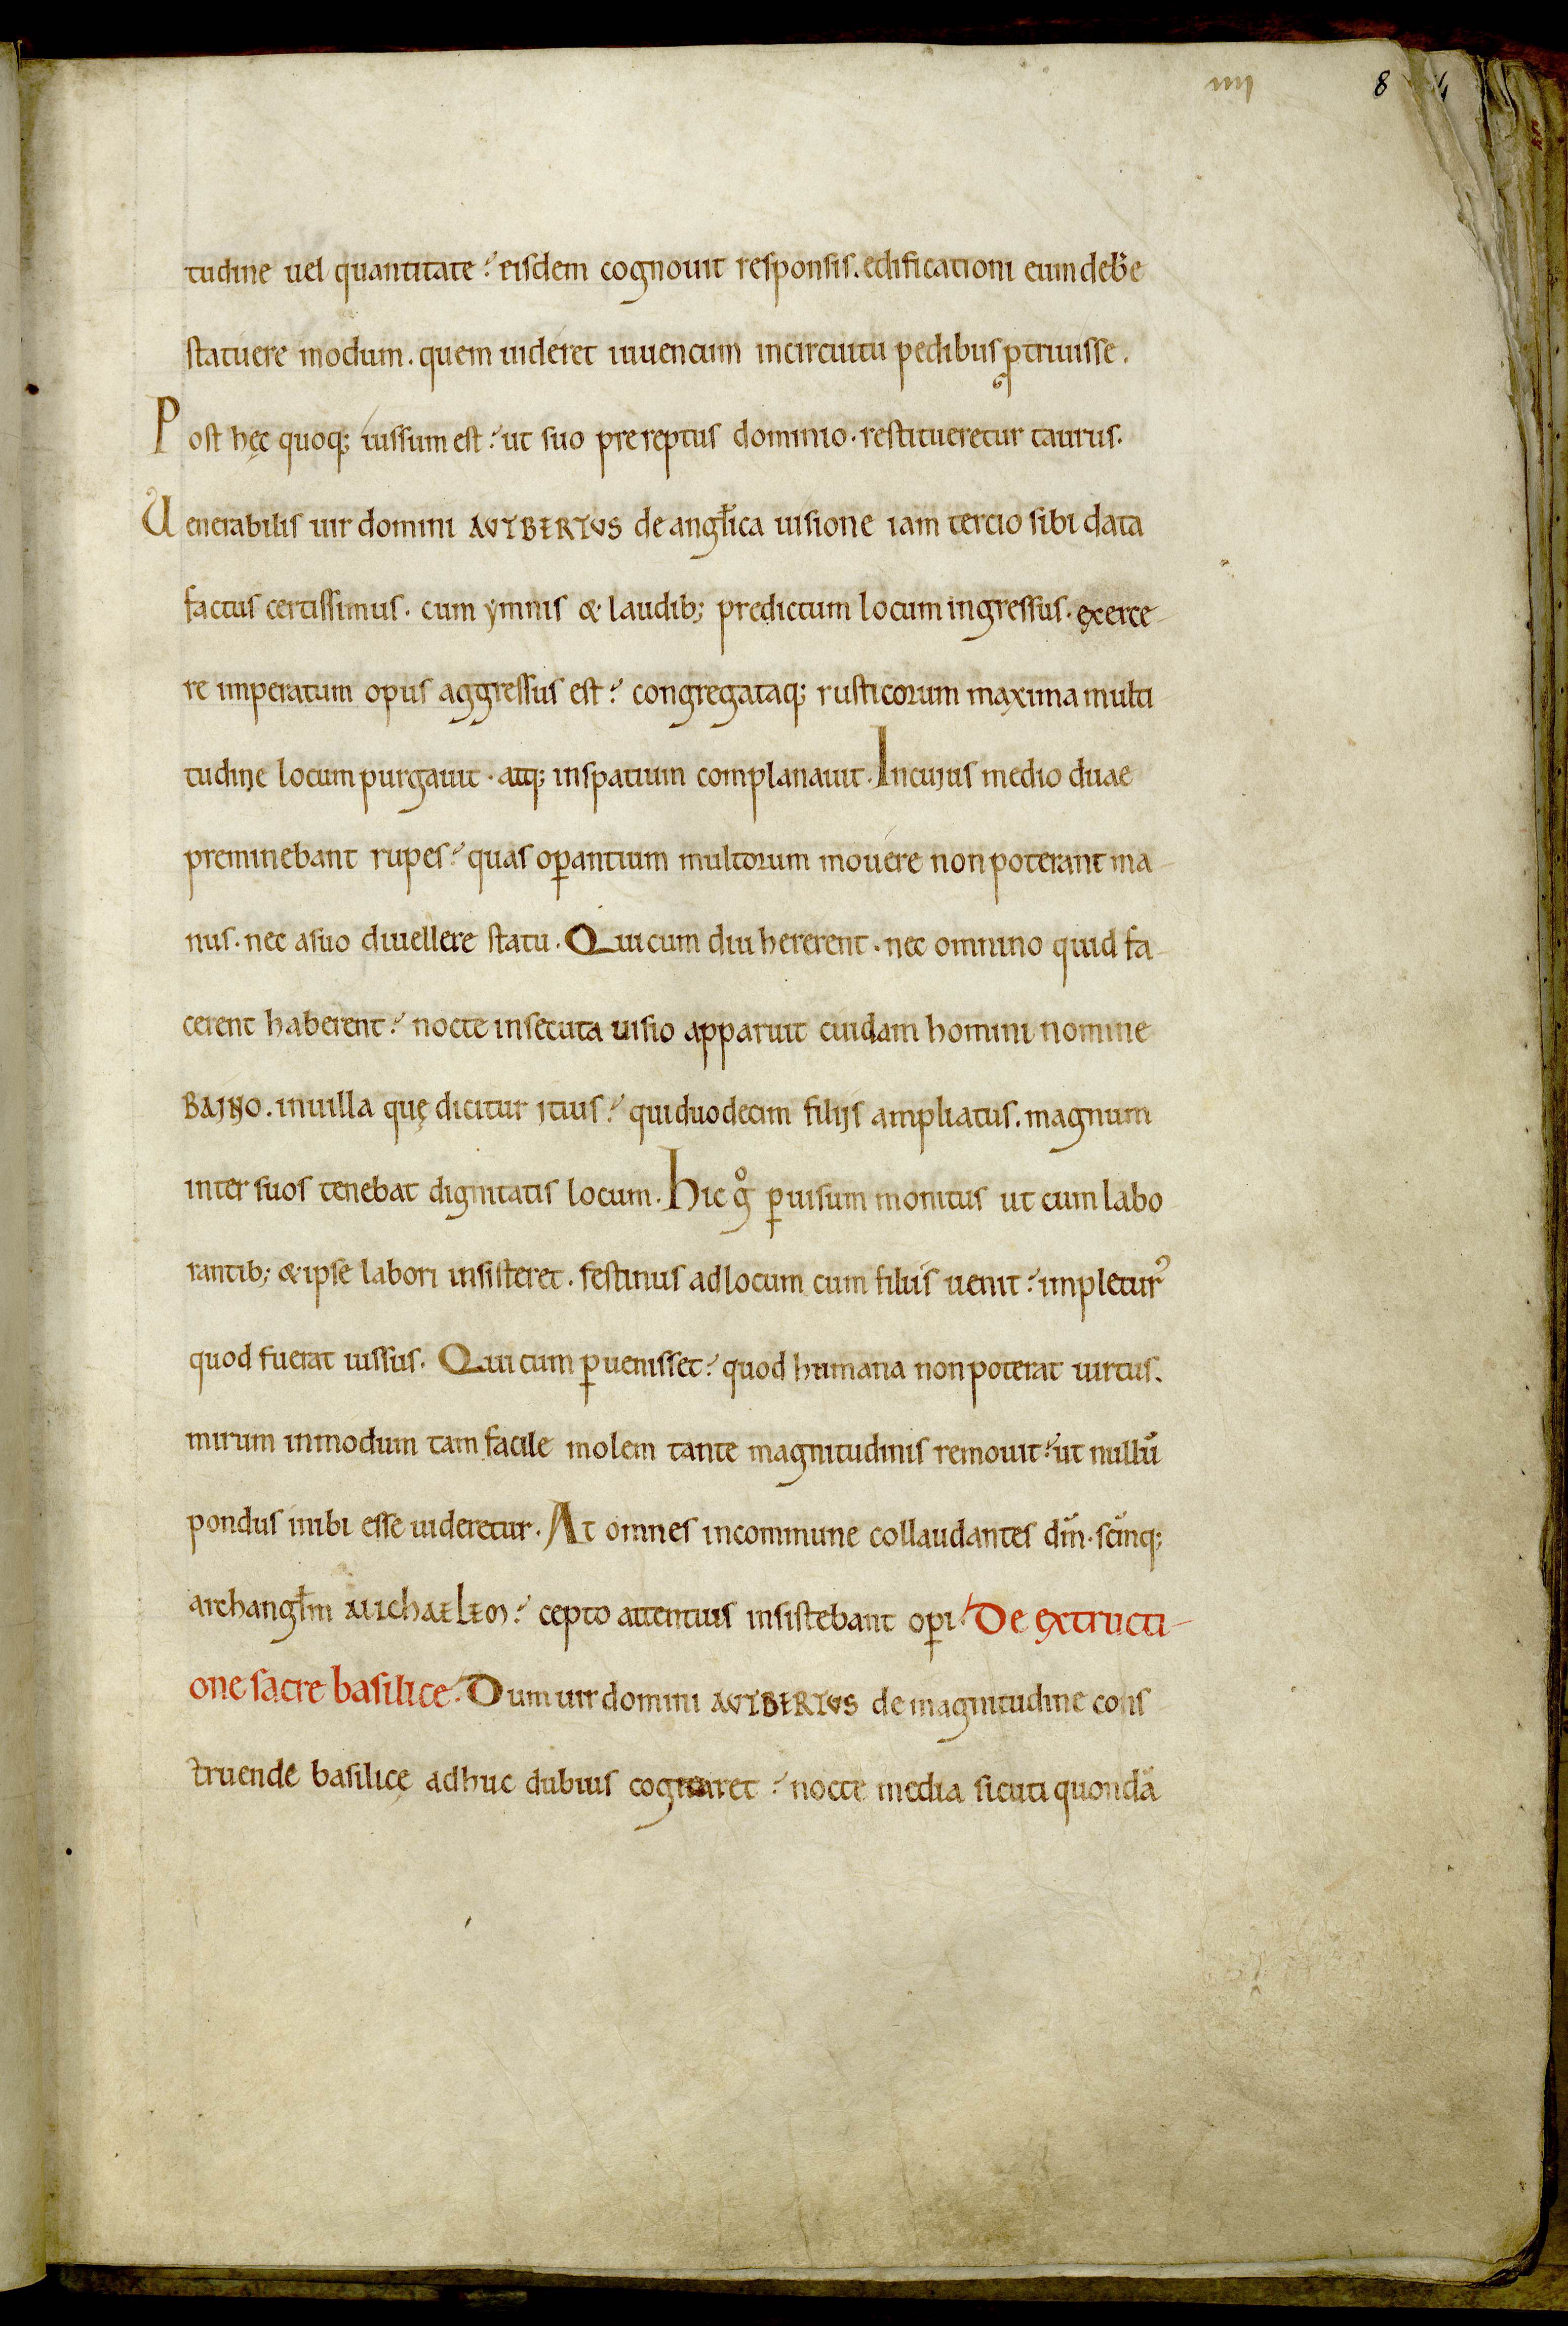 iiii 8 4
tudine uel quantitate? eisdem cognouit responsis. edificationi eum deb̄e
statuere modum. quem uideret iuuencum incircuitu pedibus ꝑtriuisse.
Post hęc quoq; iussum est? ut suo prereptus dominio. restitueretur taurus.
Uenerabilis uir domini AUTBERTUS de angl̄ica uisione iam tercio sibi data
factus certissimus. cum ymnis & laudib; predictum locum ingressus. exerce-
re imperatum opus aggressus est? congregataq; rusticorum maxima multi
tudine locum purgauit. atq; inspatium complanauit. Incuius medio duae
preminebant rupes? quas oꝑantium multorum mouere non poterant ma-
nus. nec asuo diuellere statu. Qui cum diu hererent. nec omnino quid fa-
cerent haberent? nocte insecuta uisio apparuit cuidam homini nomine
BAINO. inuilla quę dicitur itius? qui duodecim filijs ampliatus. magnum
inter suos tenebat dignitatis locum. Hic gͦ ꝑuisum monitus ut cum labo
rantib; & ipse labori insisteret. festinus adlocum cum filiis uenit? impleturꝰ
quod fuerat iussus. Qui cum ꝑuenisset? quod humana non poterat uirtus.
mirum inmodum tam facile molem tante magnitudinis remouit? ut nullū
pondus inibi esse uideretur. At omnes incommune collaudantes dm̄. scm̄q;
archangl̄m MICHAELEM? cepto attentius insistebant oꝑi. De extructi-
one sacre basilice. Dum uir domini AUTBERTUS de magnitudine cons
truende basilicę adhuc dubius cogitaret? nocte media sicuti quondā